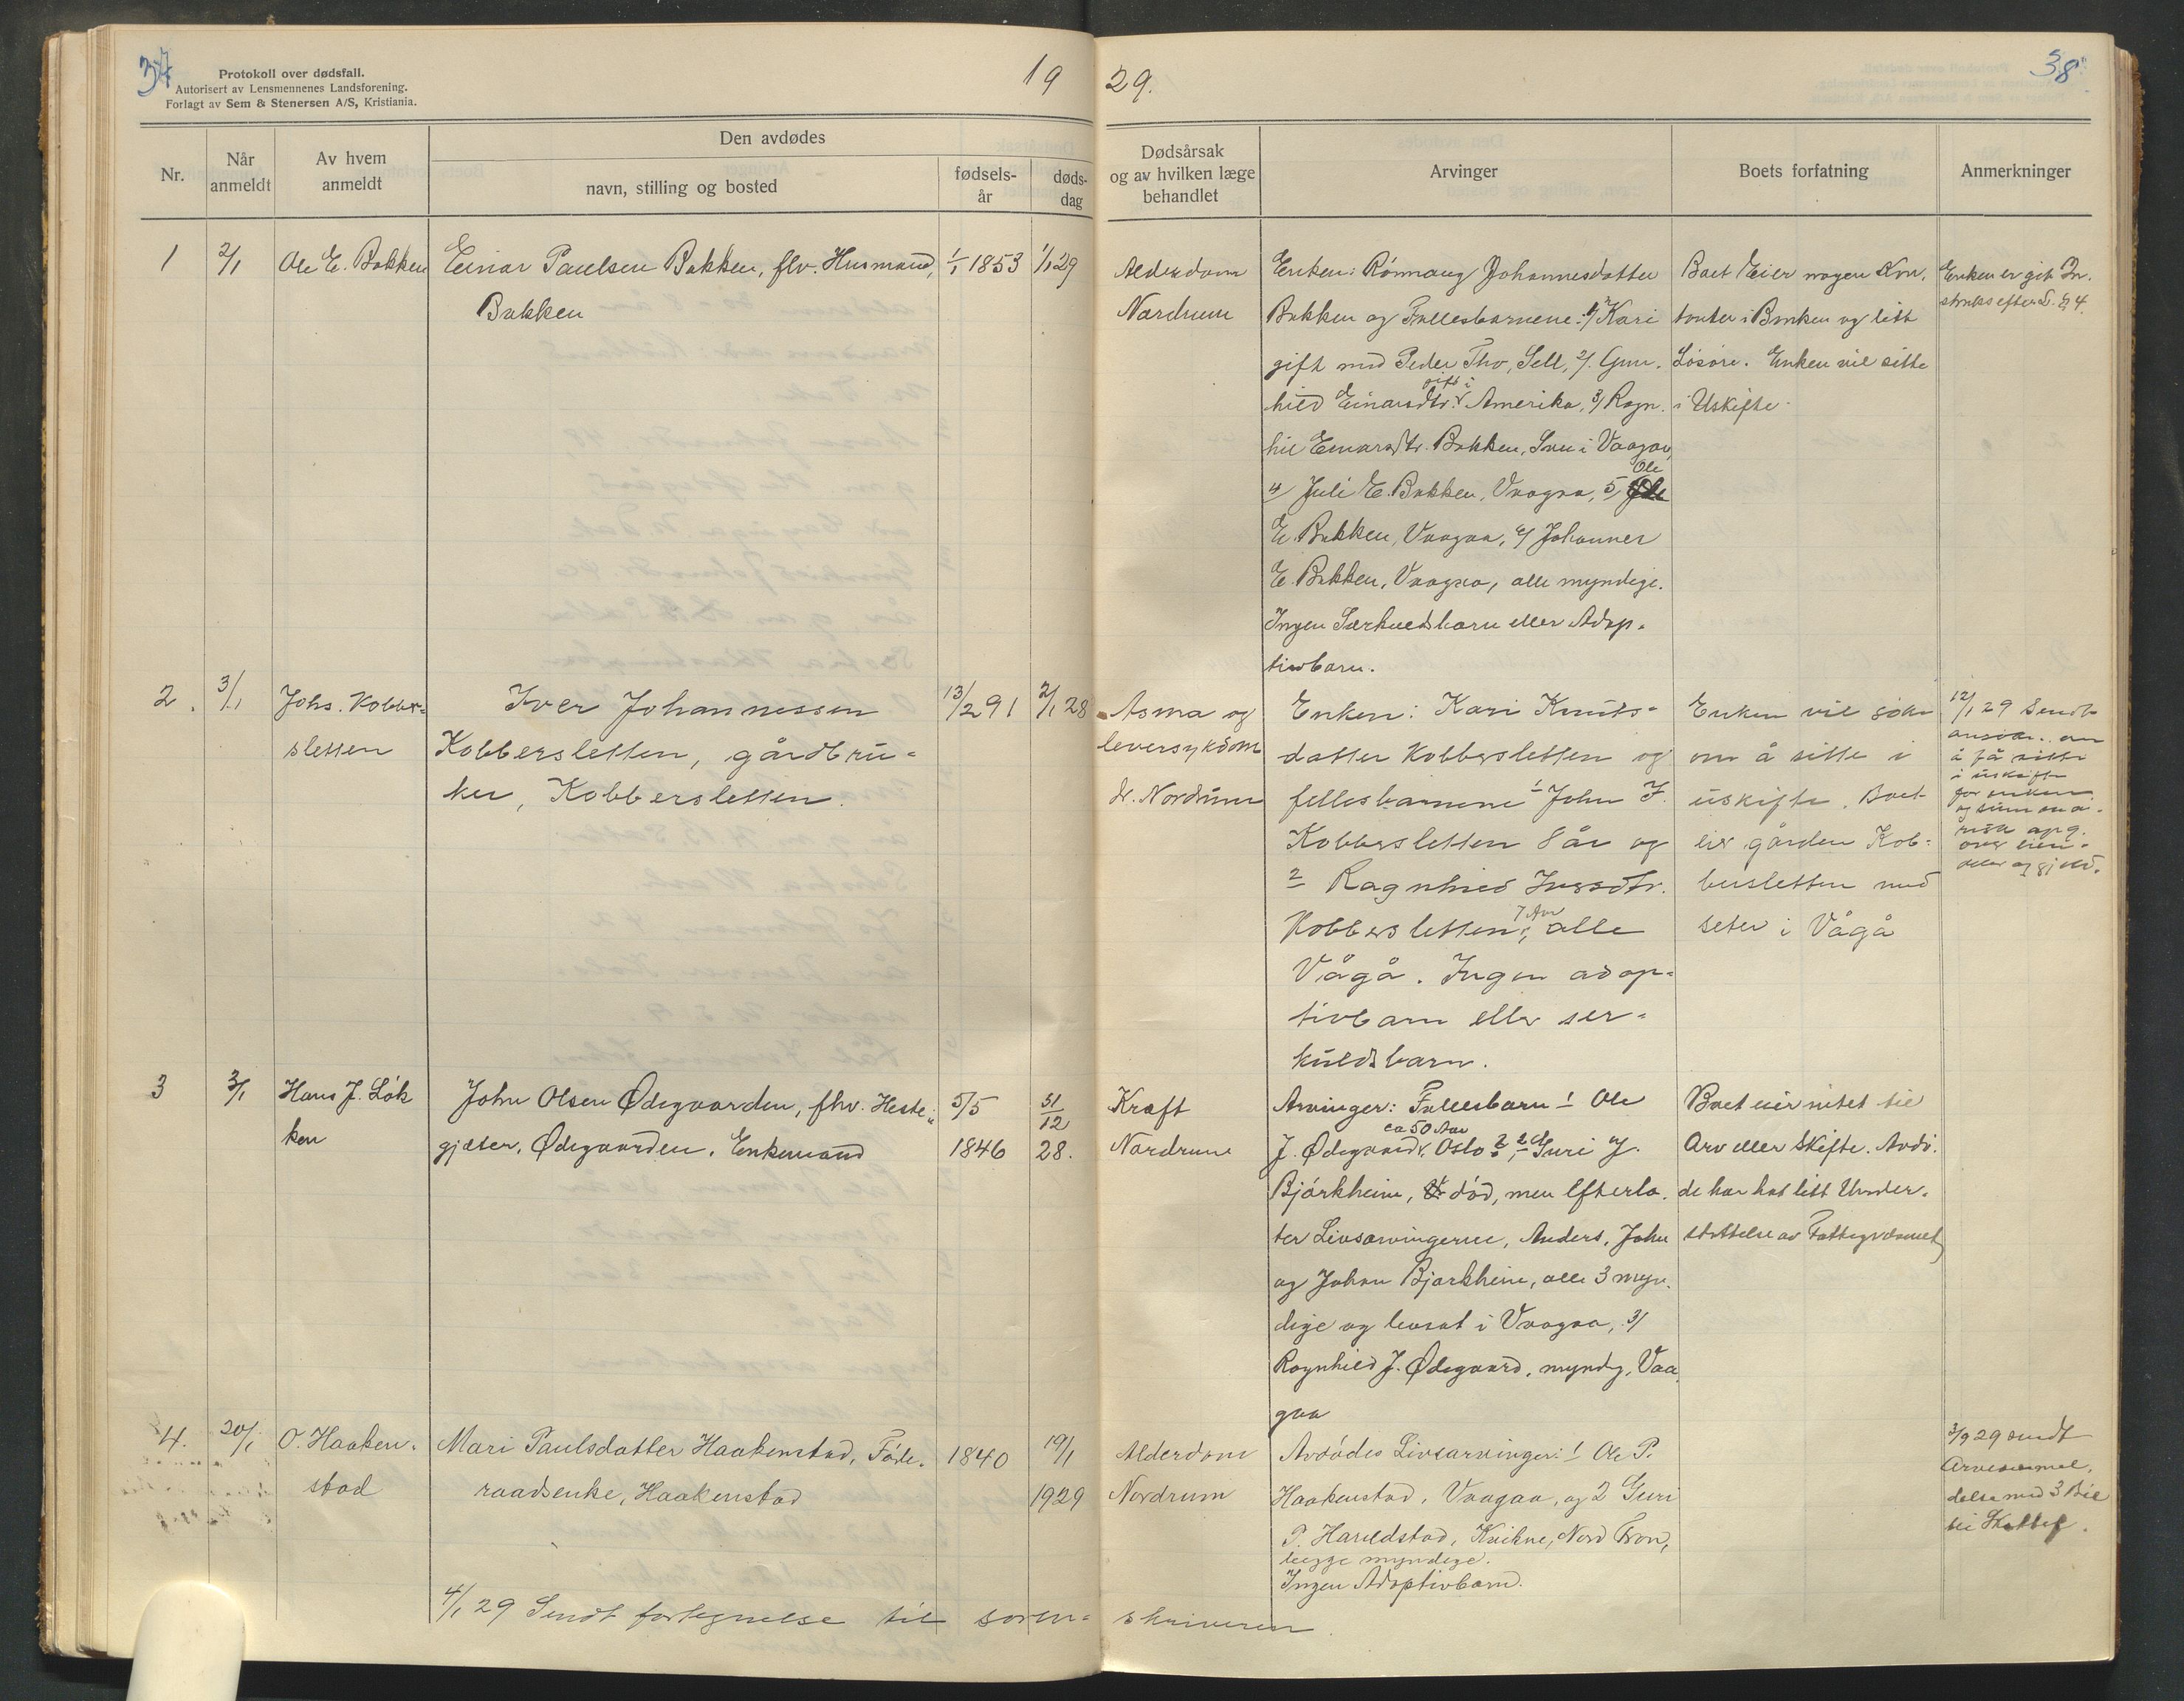 37
Protokoll over dødsfall.
Autorisert av Lensmennenes Landsforening.
Forlagt av Sem & Stenersen A/S, Kristiania.
19 29.
38
Nr.
Når anmeldt
Av hvem anmeldt
Den avdødes
navn, stilling og bosted
fødsels-år
døds-dag
Dødsårsak
og av hvilken læge
behandlet
Arvinger
Boets forfatning
Anmerkninger
1
2/1
Ole E. Bakken
Einar Paulsen Bakken, flv. Husmand,
Bakken
1/1 1853
1/1 29
Alderdom
Nordrum
Enken: Rønnaug Johannesdatter
Bakken og Fællesbarnene: 1/ Kari
gift med Peder Tho, Sell, 2/ Gun-
hild Einarsdtr. gift i Amerika, 3/ Ragn-
hil Einarsdtr. Bakken, Sve i Vaagaa,
4/ Juli E. Bakken, Vaagaa, 5 Ole
E. Bakken, Vaagaa, 6/ Johannes
E. Bakken, Vaagaa, alle myndige.
Ingen Særkuldsbarn eller Adop-
tivbarn.
Boet Eier nogen Kon-
tanter i Banken og litt
Løsøre. Enken vil sitte
i Uskifte.
Enken er git In-
struks efter L. § 4.
2.
3/1
Johs. Kobber-
sletten
Iver Johannessen
Kobbersletten, gårdbru-
ker, Kobbersletten.
13/2 91
2/1 28
Asma og
leversykdom
dr. Nordrum
Enken: Kari Knuts-
datter Kobbersletten og
fellesbarnene 1 John I.
Kobbersletten 8 år og
2 Ragnhild Iversdtr.
Kobbersletten, 7 År, alle
Vågå. Ingen adop-
tivbarn eller ser-
kuldsbarn.
Enken vil søke
om å sitte i
uskifte. Boet
eier gården Kob-
bersletten med
seter i Vågå
12/1 29 Sendt
ansøk. om
å få sitte
i uskifte
for enken
og summa-
risk opg.
over eien-
deler og gjeld.
3
3/1
Hans J. Løk
ken
John Olsen Ødegaarden, fhv. Heste-
gjæter, Ødegaarden, Enkemand
5/5
1846
31/12
28.
Kræft
Nordrum
Arvinger: Fællesbarn 1 Ole
J. Ødegaard, ca 50 Aar Oslo?, 2 Guri J.
Bjørkheim, død, men Efterla-
ter Livsarvingerne, Anders, John
og Johan Bjørkheim, alle 3 myn-
dige og bosat i Vaagaa, 3/
Ragnhild J. Ødegaard, myndig, Vaa-
gaa
Boet eier intet til
Arv eller Skifte. Avdø-
de har hat litt Under-
støttelse av Fattigvæsenet
4.
20/1
O. Haaken-
stad
Mari Paulsdatter Haakenstad, Føde-
raadsenke, Haakenstad
1840
19/1
1929
Alderdom
Nordrum
Avdødes Livsarvinger: 1 Ole P.
Haakenstad, Vaagaa, og 2 Guri
P. Haraldstad, Kvikne, Nord Fron,
begge myndige.
Ingen Adoptivbarn.
3/9 29 sendt
Arveanmel-
delse med 3 Bil
til Skattef.
4/1 29 Sendt fortegnelse til soren-skriveren.